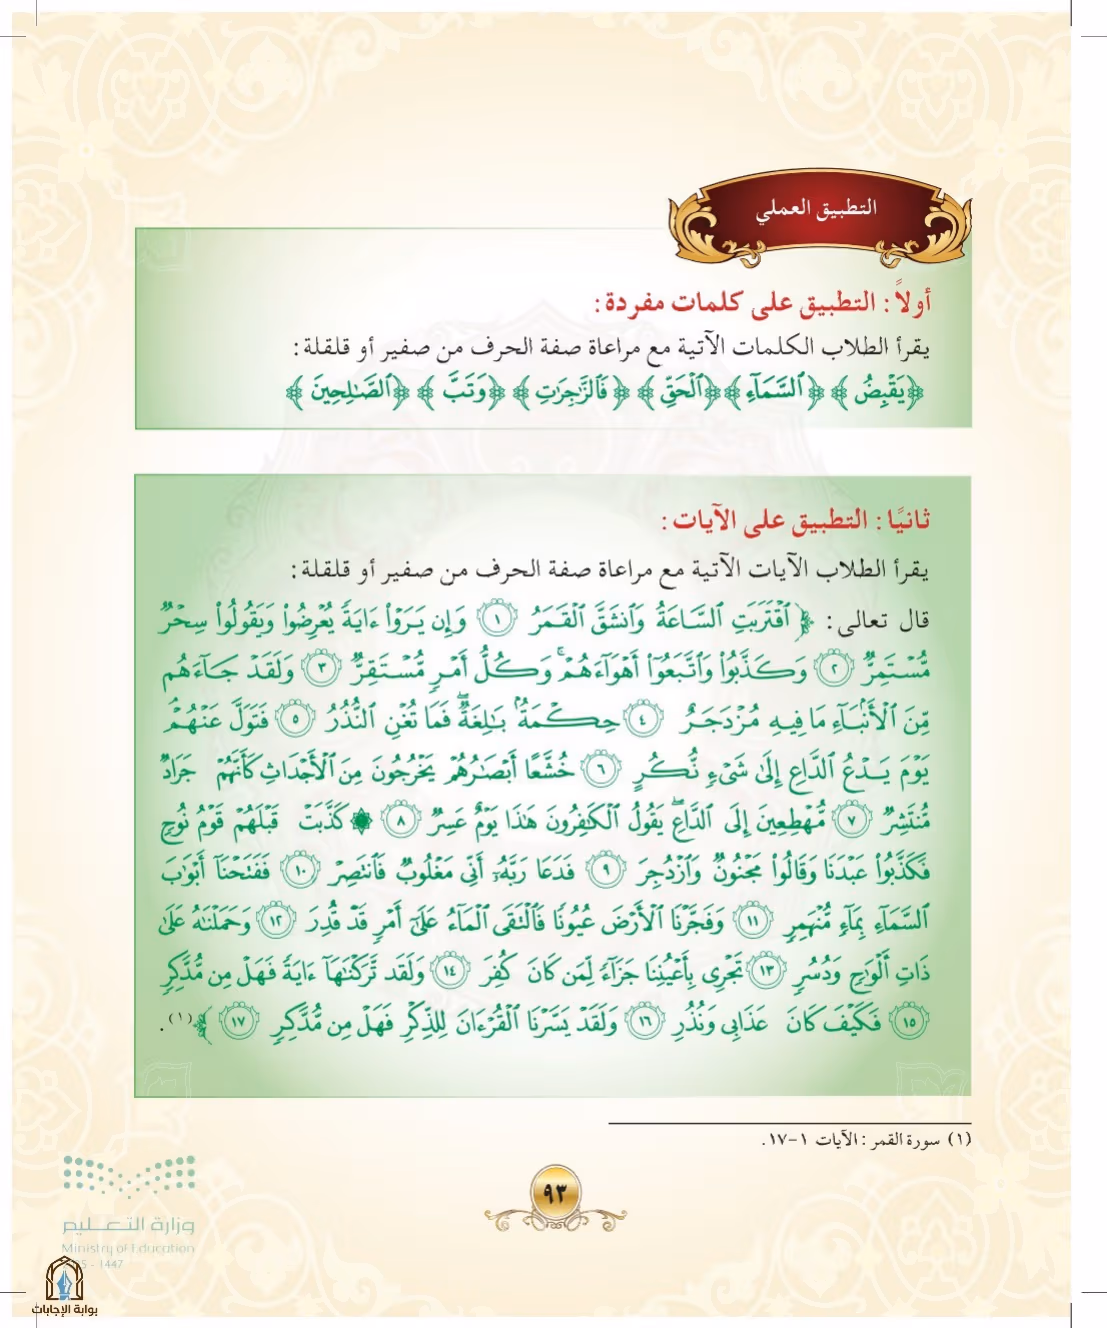 التطبيق العملي
أولاً: التطبيق على كلمات مفردة:
يقرأ الطلاب الكلمات الآتية مع مراعاة صفة الحرف من صفير أو قلقلة:
﴿يَقْبِضُ﴾ ﴿السَّمَآءِ﴾ ﴿الْحَقِّ﴾ ﴿فَالزَّٰجِرَٰتِ﴾ ﴿وَتَبَّ﴾ ﴿الصَّٰلِحِينَ﴾
ثانيًا: التطبيق على الآيات:
يقرأ الطلاب الآيات الآتية مع مراعاة صفة الحرف من صفير أو قلقلة:
قال تعالى: ﴿ ٱقْتَرَبَتِ ٱلسَّاعَةُ وَٱنشَقَّ ٱلْقَمَرُ ١ وَإِن يَرَوْا۟ ءَايَةً يُعْرِضُوا۟ وَيَقُولُوا۟ سِحْرٌ
مُّسْتَمِرٌّ ٢ وَكَذَّبُوا۟ وَٱتَّبَعُوٓا۟ أَهْوَآءَهُمْ ۚ وَكُلُّ أَمْرٍ مُّسْتَقِرٌّ ٣ وَلَقَدْ جَآءَهُم
مِّنَ ٱلْأَنۢبَآءِ مَا فِيهِ مُزْدَجَرٌ ٤ حِكْمَةٌۢ بَٰلِغَةٌ ۖ فَمَا تُغْنِ ٱلنُّذُرُ ٥ فَتَوَلَّ عَنْهُمْ ۘ
يَوْمَ يَدْعُ ٱلدَّاعِ إِلَىٰ شَىْءٍ نُّكُرٍ ٦ خُشَّعًا أَبْصَٰرُهُمْ يَخْرُجُونَ مِنَ ٱلْأَجْدَاثِ كَأَنَّهُمْ جَرَادٌ
مُّنتَشِرٌ ٧ مُّهْطِعِينَ إِلَى ٱلدَّاعِ ۖ يَقُولُ ٱلْكَٰفِرُونَ هَٰذَا يَوْمٌ عَسِرٌ ٨ ۞ كَذَّبَتْ قَبْلَهُمْ قَوْمُ نُوحٍ
فَكَذَّبُوا۟ عَبْدَنَا وَقَالُوا۟ مَجْنُونٌ وَٱزْدُجِرَ ٩ فَدَعَا رَبَّهُۥٓ أَنِّى مَغْلُوبٌ فَٱنتَصِرْ ١٠ فَفَتَحْنَآ أَبْوَٰبَ
ٱلسَّمَآءِ بِمَآءٍ مُّنْهَمِرٍ ١١ وَفَجَّرْنَا ٱلْأَرْضَ عُيُونًا فَٱلْتَقَى ٱلْمَآءُ عَلَىٰٓ أَمْرٍ قَدْ قُدِرَ ١٢ وَحَمَلْنَٰهُ عَلَىٰ
ذَاتِ أَلْوَٰحٍ وَدُسُرٍ ١٣ تَجْرِى بِأَعْيُنِنَا جَزَآءً لِّمَن كَانَ كُفِرَ ١٤ وَلَقَد تَّرَكْنَٰهَآ ءَايَةً فَهَلْ مِن مُّدَّكِرٍ
١٥ فَكَيْفَ كَانَ عَذَابِى وَنُذُرِ ١٦ وَلَقَدْ يَسَّرْنَا ٱلْقُرْءَانَ لِلذِّكْرِ فَهَلْ مِن مُّدَّكِرٍ ١٧ ﴾(١).
(١) سورة القمر: الآيات ١-١٧.
٩٣
وزارة التعليم
Ministry of Education
5 - 1447
بوابة الإجابات